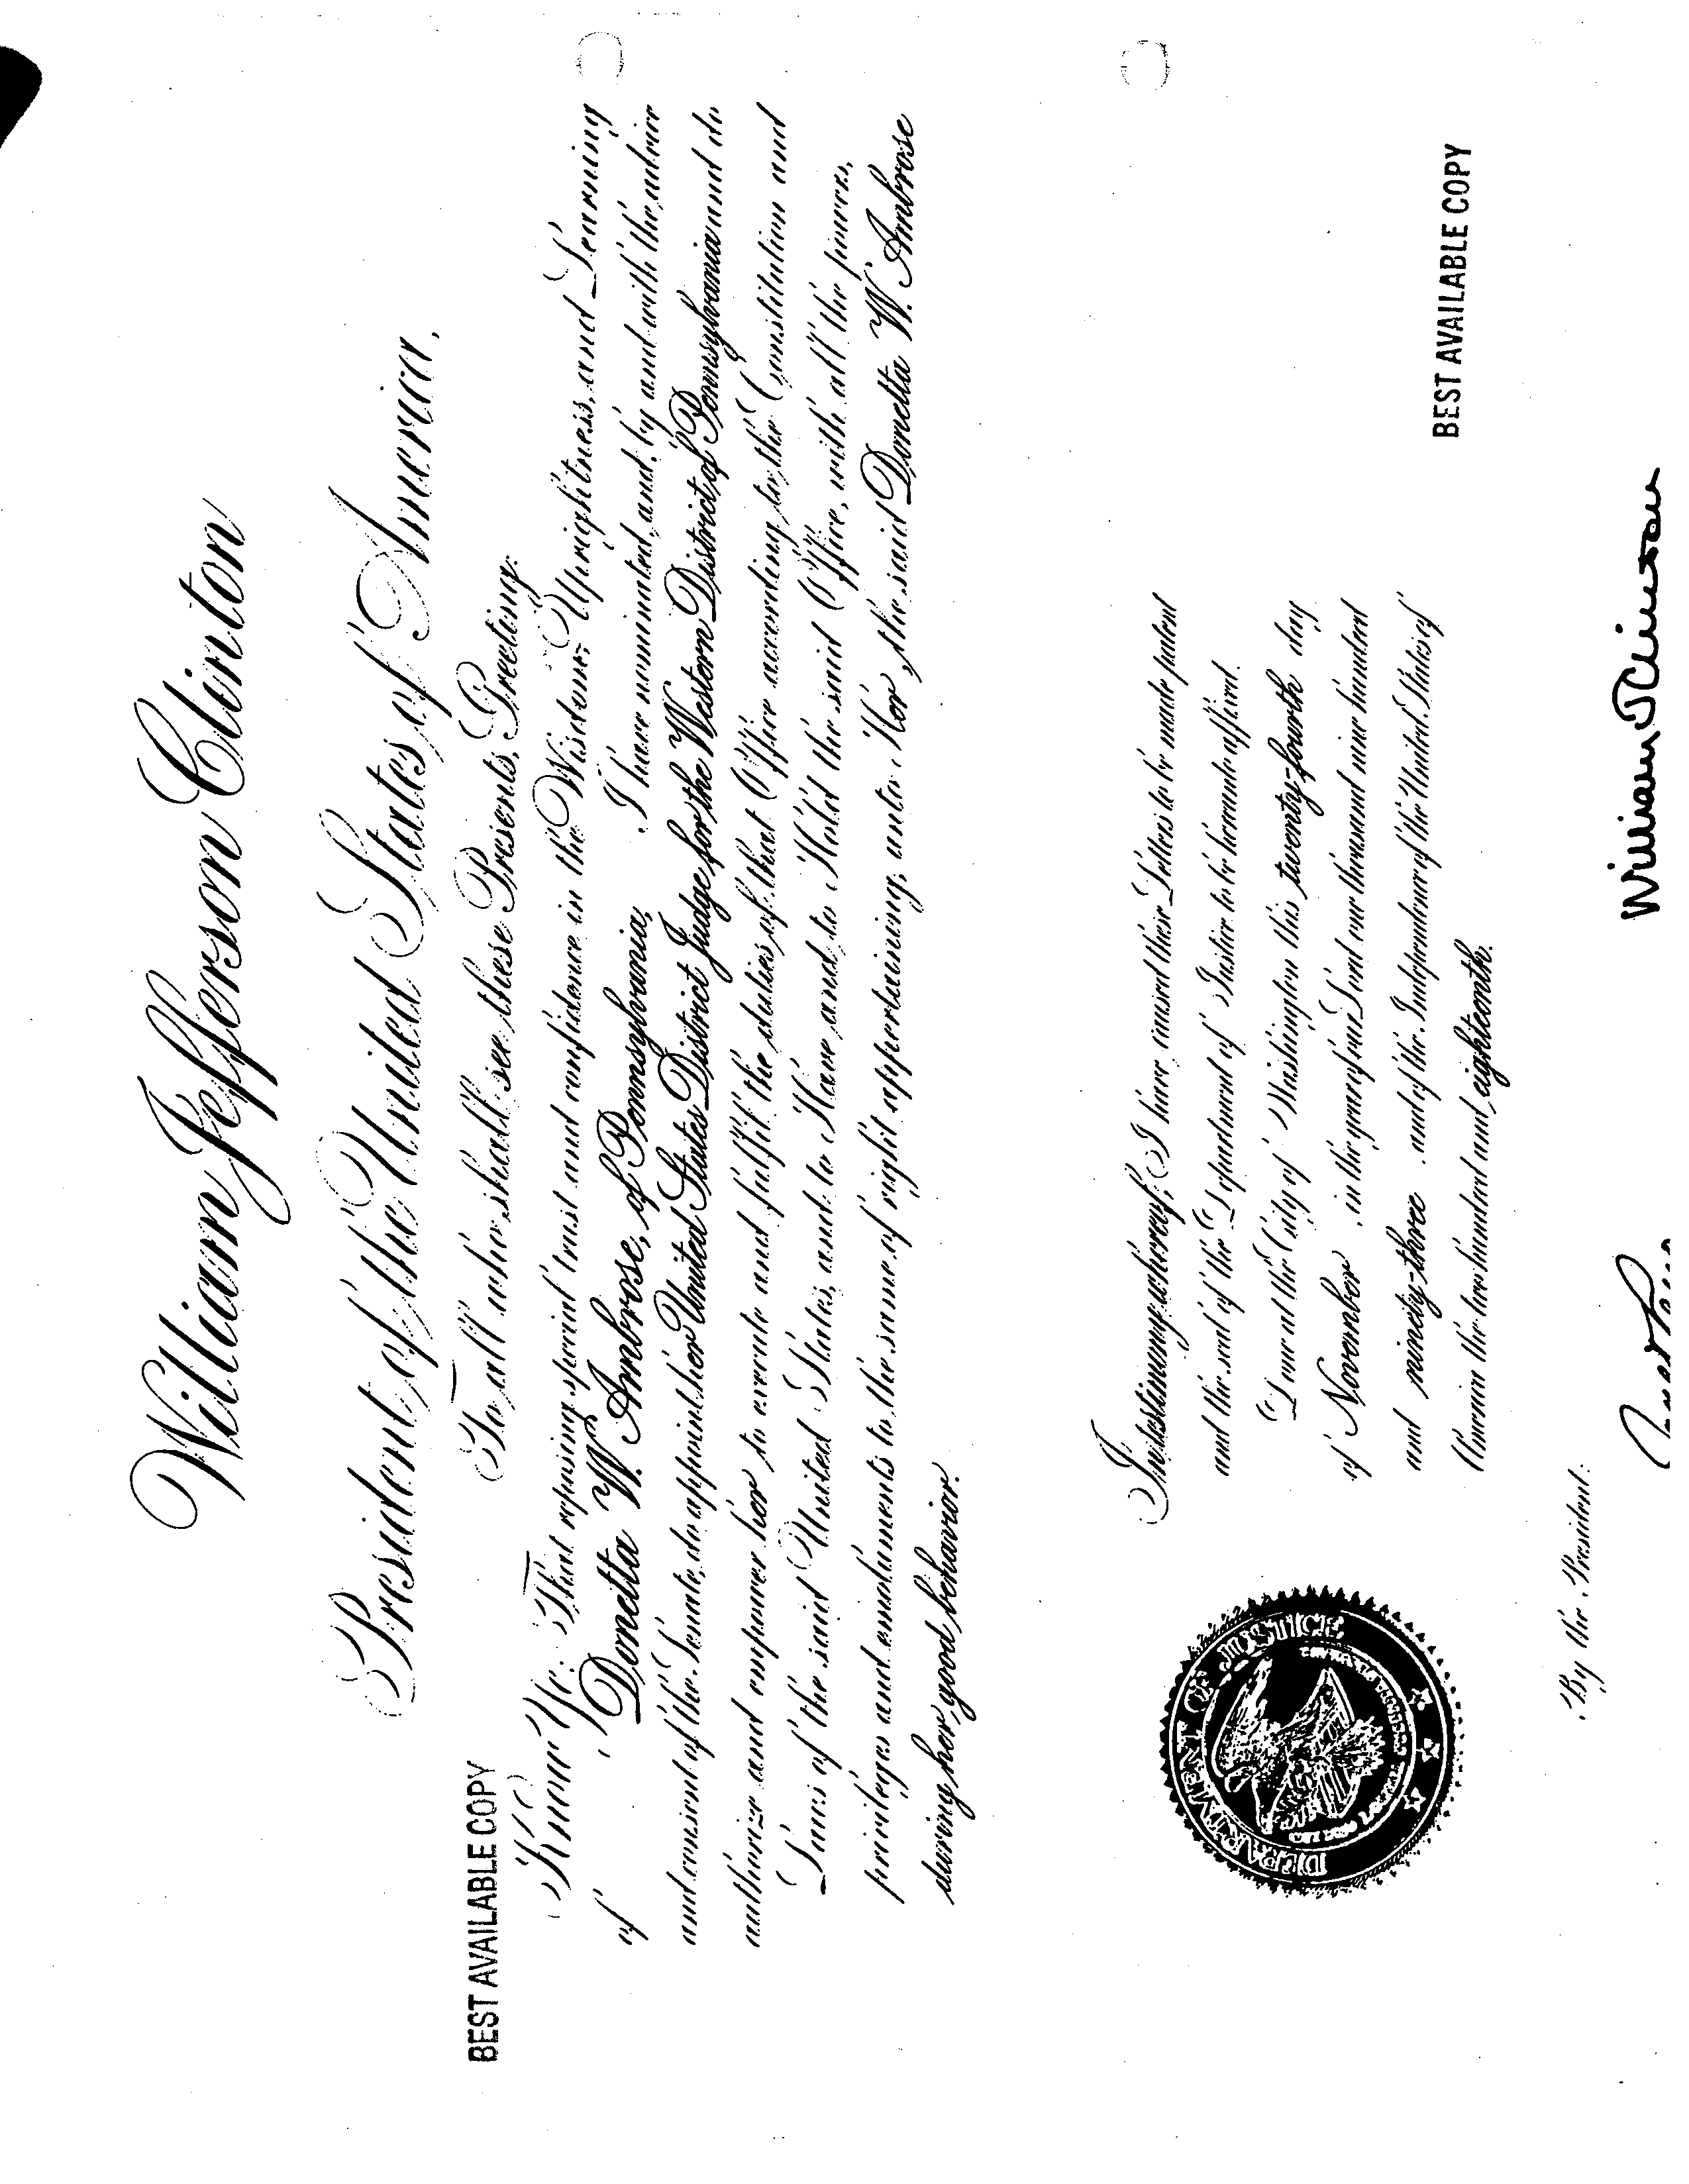 William Jefferson Clinton
President of the United States of America,
To all who shall see these Presents, Greeting:
BEST AVAILABLE COPY
Know Ye: That reposing special trust and confidence in the Wisdom, Uprightness, and Learning
of Donetta W. Ambrose, of Pennsylvania, I have nominated, and, by and with the advice
and consent of the Senate, do appoint her United States District Judge for the Western District of Pennsylvania and do
authorize and empower her to execute and fulfil the duties of that Office according to the Constitution and
Laws of the said United States, and to Have and to Hold the said Office, with all the powers,
privileges and emoluments to the same of right appertaining, unto Her, the said Donetta W. Ambrose
during her good behavior.
In testimony whereof, I have caused these Letters to be made patent
and the seal of the Department of Justice to be hereunto affixed.
Done at the City of Washington this twenty-fourth day
of November, in the year of our Lord one thousand nine hundred
and ninety-three, and of the Independence of the United States of
America the two hundred and eighteenth.
DEPARTMENT OF JUSTICE
BEST AVAILABLE COPY
By the President:
William J Clinton